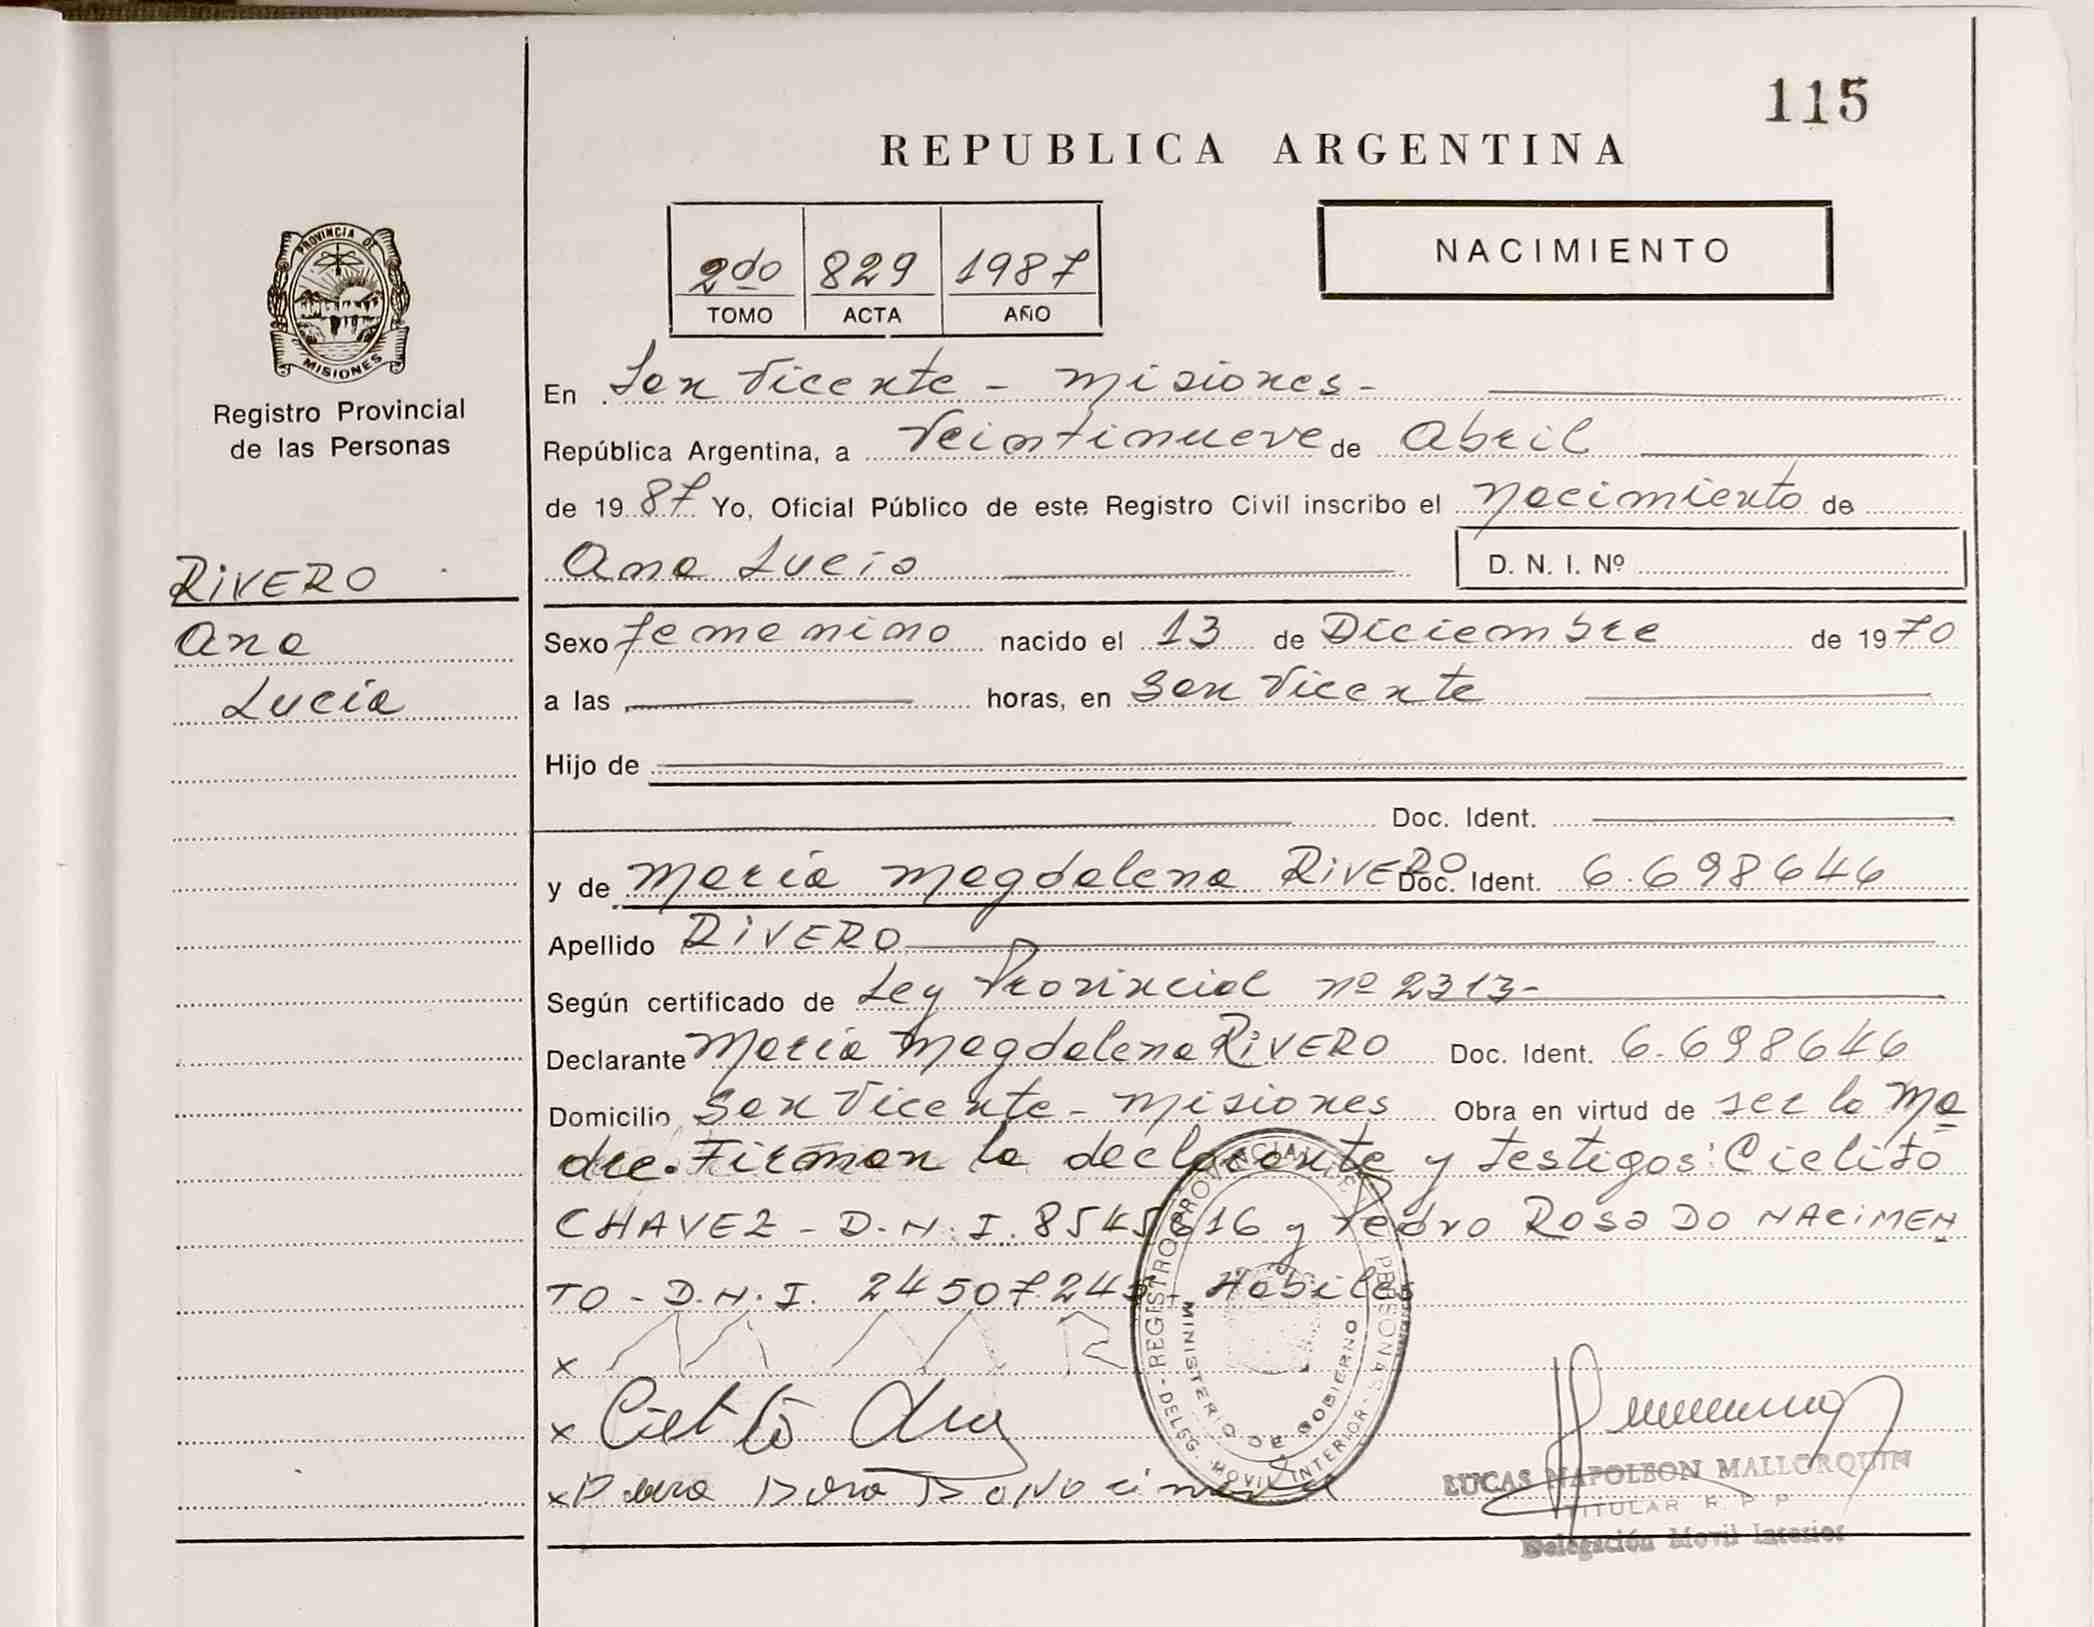 115
REPUBLICA ARGENTINA
2do 829 1987
TOMO ACTA AÑO
NACIMIENTO
PROVINCIA DE
MISIONES
Registro Provincial
de las Personas
RIVERO
Ana
Lucía
En San Vicente - Misiones -
República Argentina, a Veintinueve de Abril
de 1987 Yo, Oficial Público de este Registro Civil inscribo el Nacimiento de
Ana Lucía
D. N. I. Nº
Sexo femenino nacido el 13 de Diciembre de 1970
a las horas, en San Vicente
Hijo de
Doc. Ident.
y de María Magdalena RIVERO Doc. Ident. 6.698646
Apellido RIVERO
Según certificado de Ley Provincial nº 2313-
Declarante María Magdalena RIVERO Doc. Ident. 6.698646
Domicilio San Vicente - Misiones Obra en virtud de ser la Ma
dre. Firman la declarante y testigos: Cielito
CHAVEZ - D.N.I. 8545816 y Pedro Rosa DO NACIMEN
TO - D.N.I. 24507245 - Hábiles
x M M R
x Cielito
x
REGISTRO PROVINCIAL DE LAS PERSONAS - DELEG. MOVIL INTERIOR -
MINISTERIO DE GOBIERNO
LUCAS NAPOLEON MALLORQUIN
TITULAR R. P. P.
Delegación Movil Interior